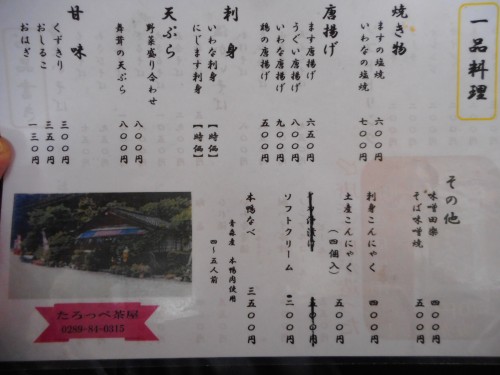 一品料理
焼き物
ますの塩焼 六〇〇円
いわなの塩焼 七〇〇円
唐揚げ
ます唐揚げ 六五〇円
うぐい唐揚げ 八〇〇円
いわな唐揚げ 九〇〇円
鶏の唐揚げ 五〇〇円
刺身
いわな刺身 【時価】
にじます刺身 【時価】
天ぷら
野菜盛り合わせ 八〇〇円
舞茸の天ぷら 八〇〇円
甘味
くずきり 三〇〇円
おしるこ 三〇〇円
おはぎ 一三〇円
その他
味噌田楽 四〇〇円
そば味噌焼 五〇〇円
刺身こんにゃく 四〇〇円
土産こんにゃく (四個入) 五〇〇円
ソフトクリーム 三〇〇円
本鴨なべ 三五〇〇円
青森産 本鴨肉使用
四〜五人前
たろっぺ茶屋
0288-84-0315